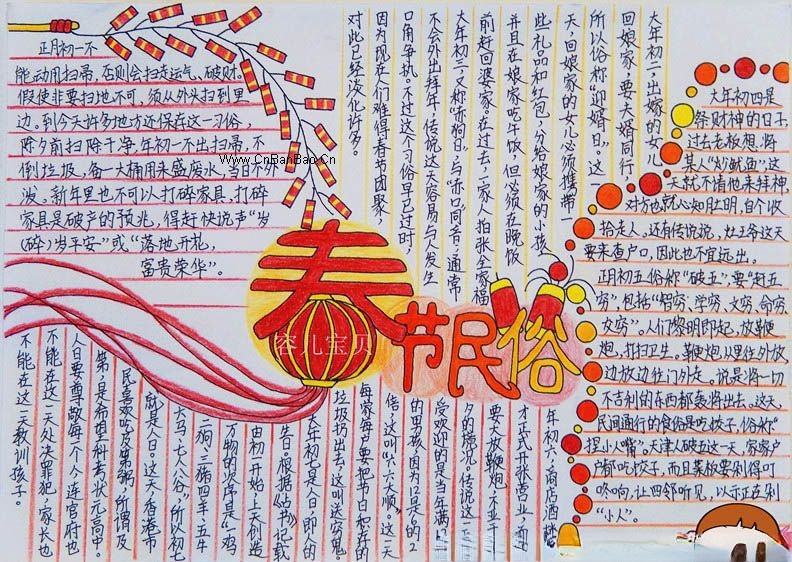 正月初一不
能动用扫帚,否则会扫走运气、破财。
假使非要扫地不可,须从外头扫到里
边。到今天许多地方还保存在这一习俗,
除夕前扫除干净,年初一不出扫帚,不
倒垃圾,备一大桶用来盛废水,当日不外
泼。新年里也不可以打碎家具,打碎
家具是破产的预兆,得赶快说声“岁
(碎)岁平安”或“落地开花,
富贵荣华”。
www.CnBanBao.Cn
大年初二,出嫁的女儿
回娘家,要夫婿同行,
所以俗称“迎婿日”。这一
天,回娘家的女儿必须携带一
些礼品和红包,分给娘家的小孩,
并且在娘家吃午饭,但必须在晚饭
前赶回婆家。在过去,一家人拍张全家福
大年初三,又称“赤狗日”,与“赤口”同音,通常
不会外出拜年,传说这天容易与人发生
口角争执。不过这个习俗早已过时,
因为现在人们难得春节团聚,
对此已经淡化许多。
大年初四是
祭财神的日子,
过去老板想将
某人“炒鱿鱼”,这
天就不请他来拜神,
对方也就心知肚明,自个收
拾走人,还有传说说,灶王爷这天
要来查户口,因此也不宜远出。
正月初五俗称“破五”,要“赶五
穷”,包括“智穷、学穷、文穷、命穷、
交穷”。人们黎明即起,放鞭
炮,打扫卫生。鞭炮从里往外放,
边放边往门外走。说是将一切
不吉利的东西都轰将出去。这天,
民间通行的食俗是吃饺子,俗称“
捏小人嘴”。天津人破五这一天,家家户
户都吃饺子,而且菜板要剁得叮
咚响,让四邻听见,以示正在剁
“小人”。
春节民俗
容儿宝贝
年初六,商店酒楼
才正式开张营业,而且
要大放鞭炮,不亚于
夕的盛况。传说这一天
受欢迎的是当年满12岁
的男孩,因为12是6的2
倍,这叫“六六大顺”。这一天
每家每户要把节日积存的
垃圾扔出去,这叫送穷鬼。
大年初七是人日,即人的
生日。根据《占书》记载
由初一开始,上天创造
万物的次序是“一鸡
二狗,三猪四羊,五牛
六马,七人八谷”,所以初七
就是人日。这天,香港市
民喜欢吃及第粥,所谓及
第,是希望科考状元高中。
人日要尊敬每个人,连官府也
不能在这一天处决罪犯,家长也
不能在这一天教训孩子。